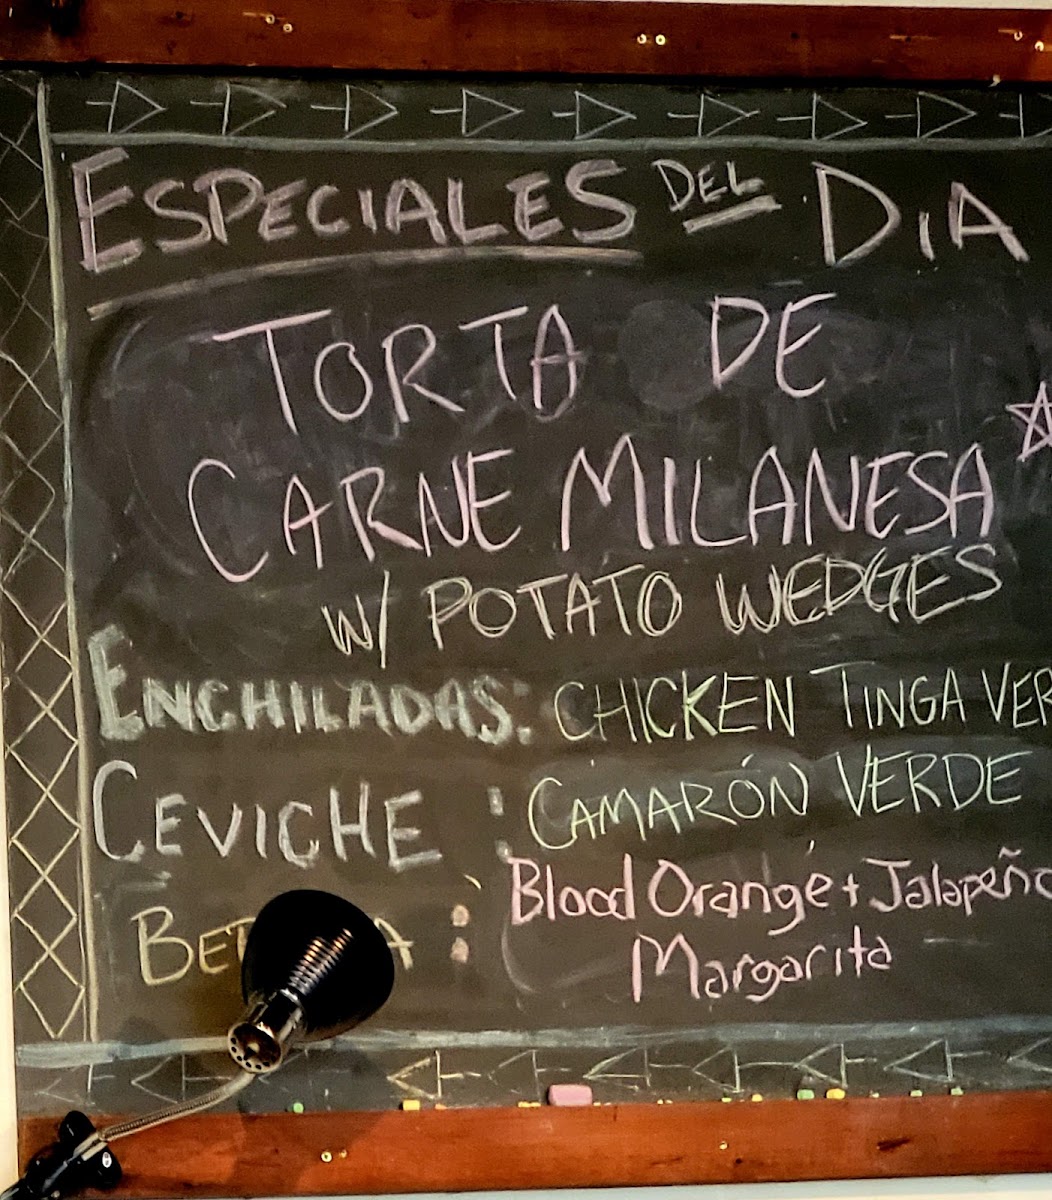 ESPECIALES DEL DIA
TORTA DE
CARNE MILANESA
W/ POTATO WEDGES
ENCHILADAS: CHICKEN TINGA VER
CEVICHE : CAMARÓN VERDE
: Blood Orange + Jalapeño
Margarita